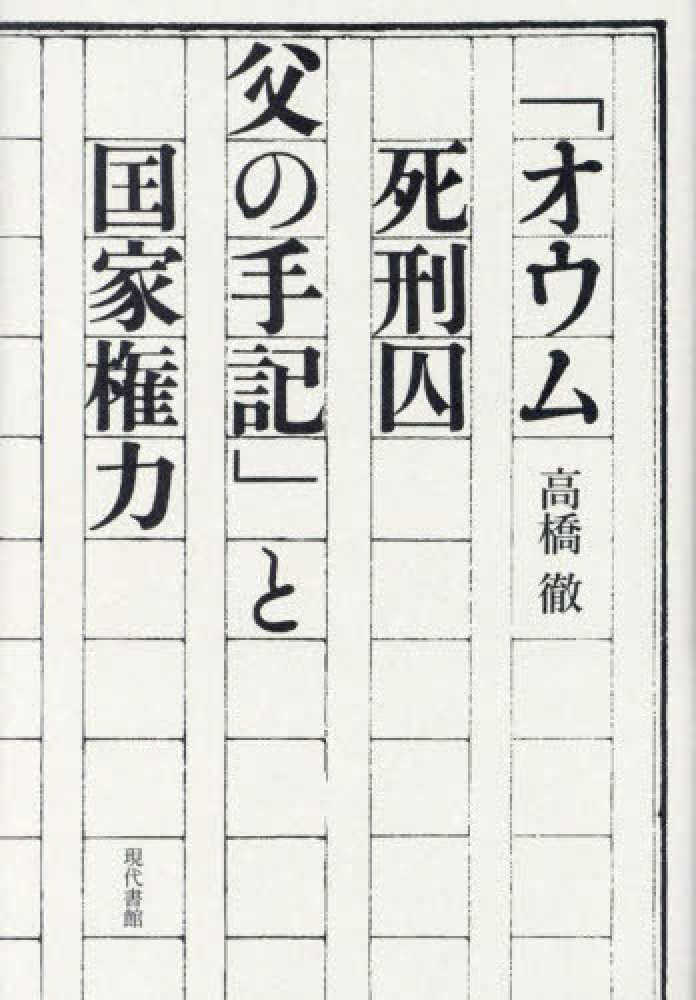 「オウム
死刑囚
父の手記」と
国家権力
高橋 徹
現代書館